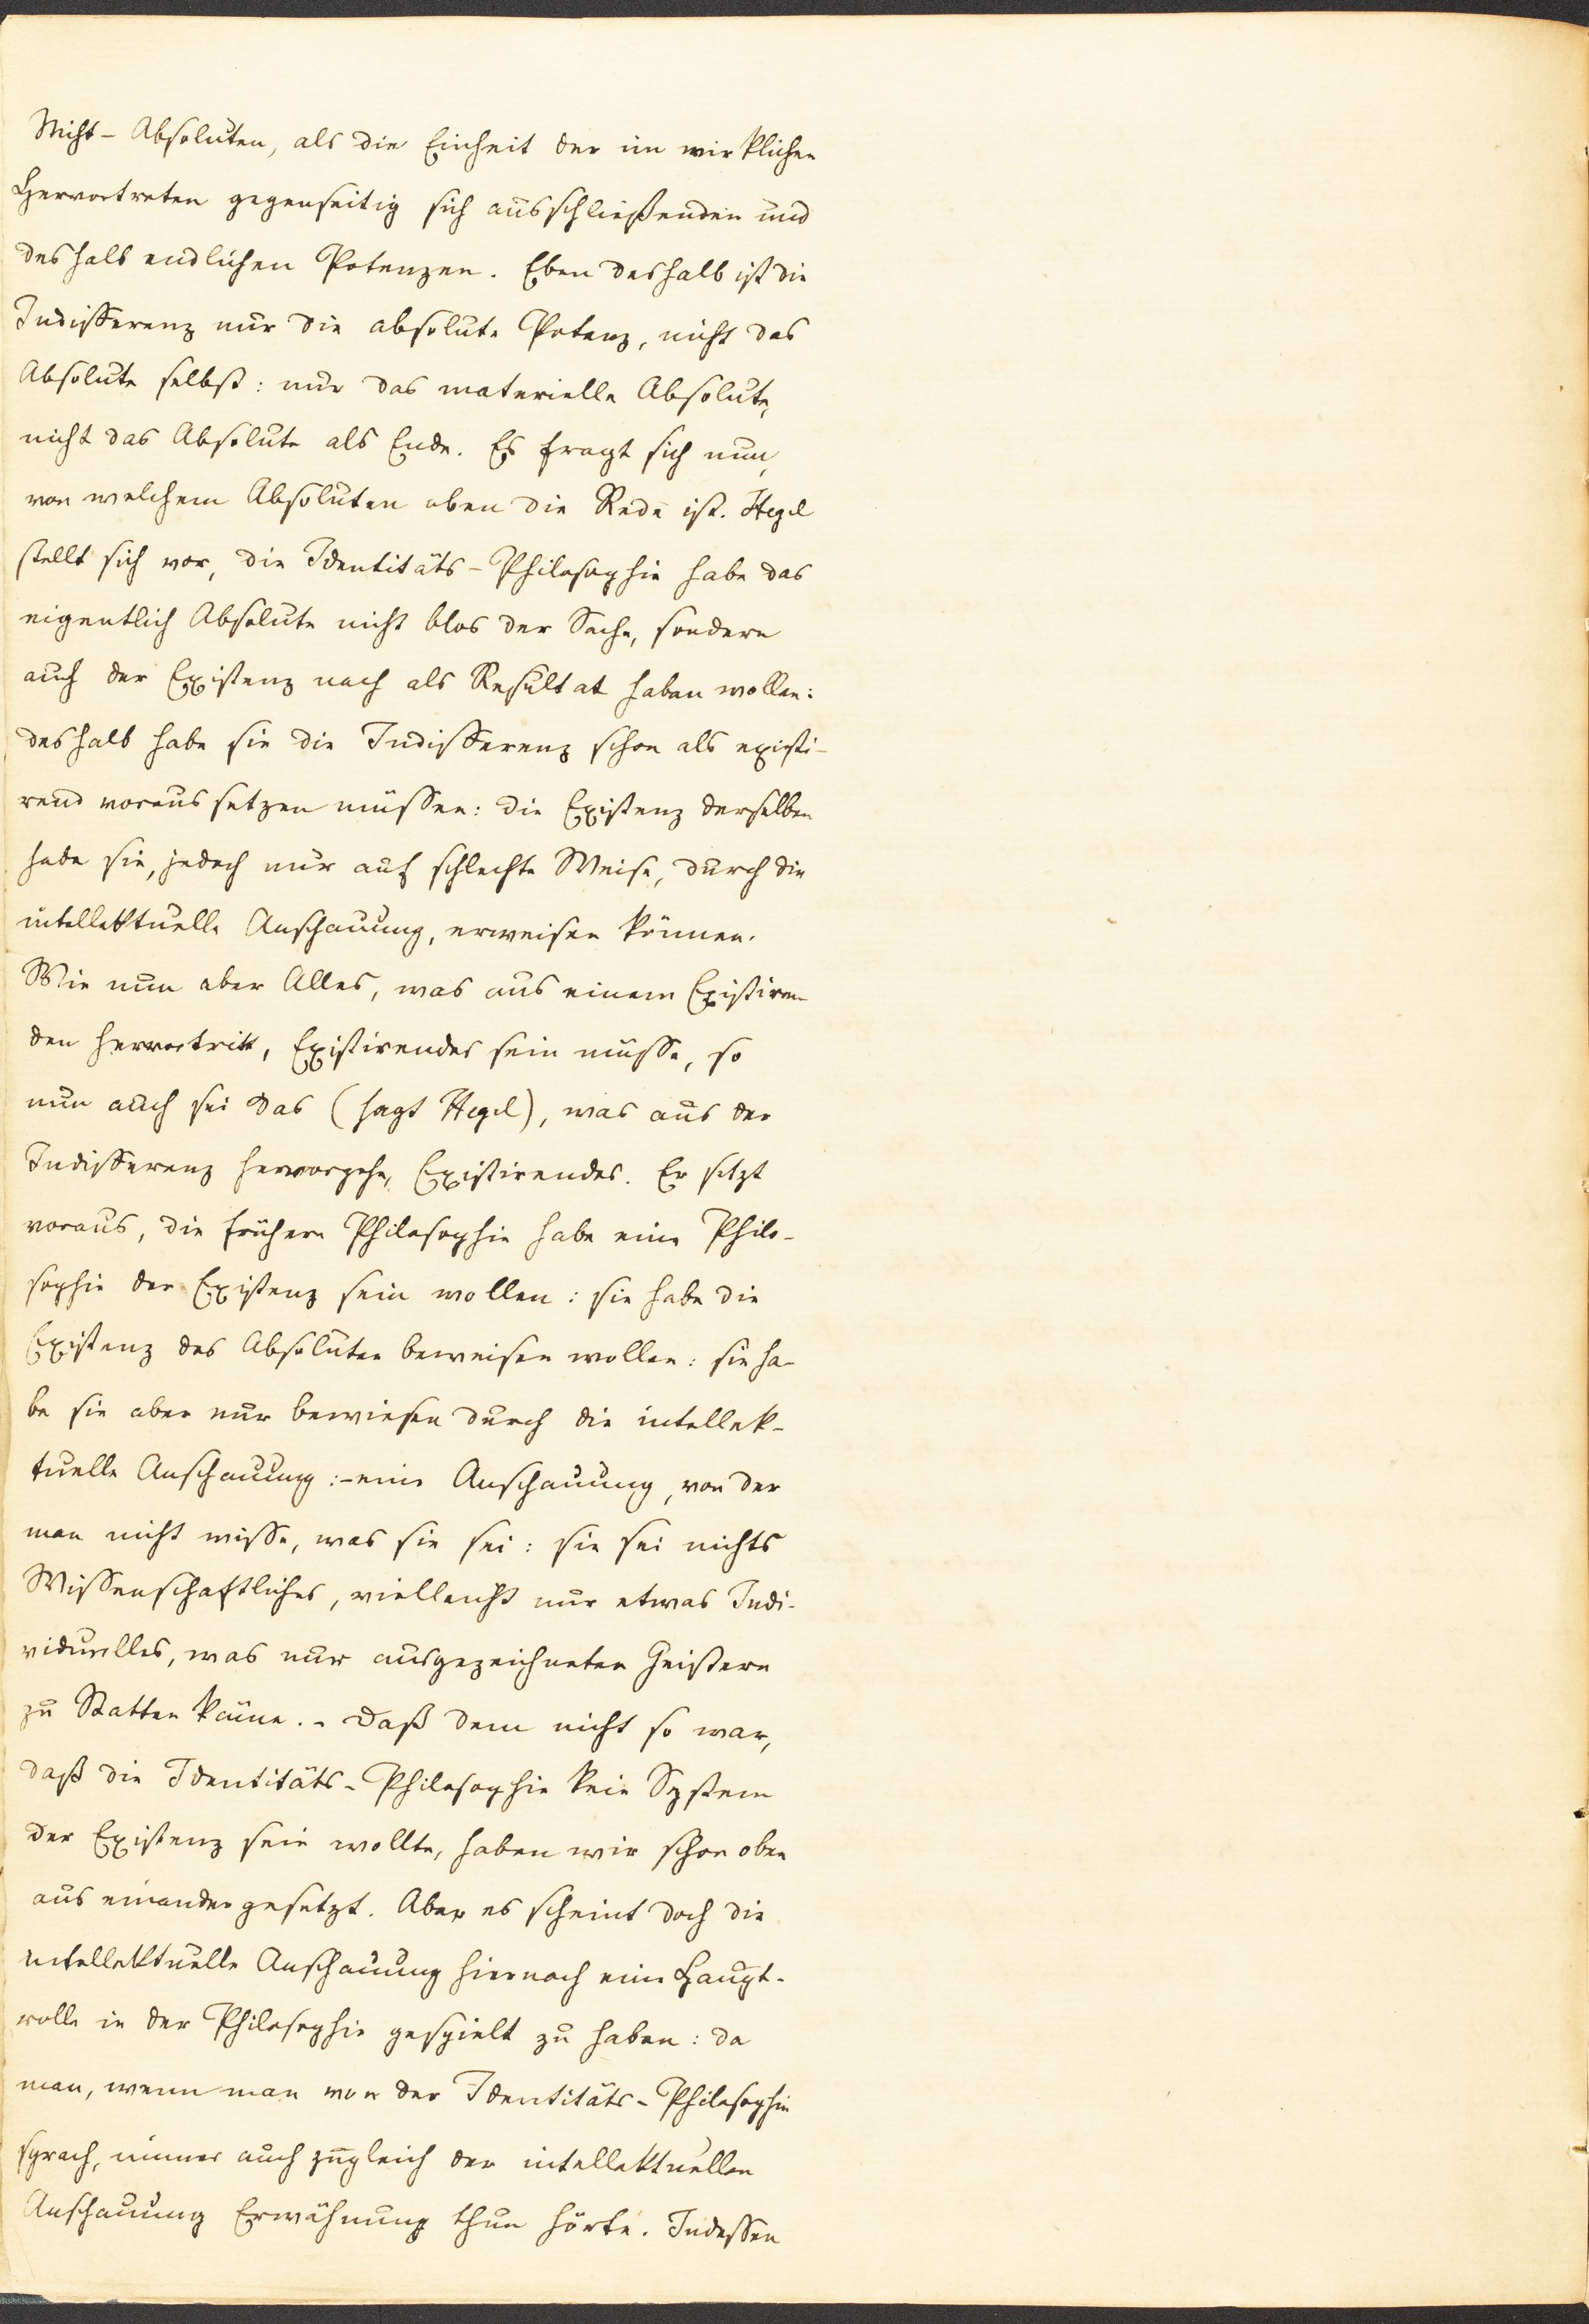 Nicht-Absoluten, als die Einheit der im wirklichen
Hervortreten gegenseitig sich ausschließenden und
deshalb endlichen Potenzen. Eben deshalb ist die
Indifferenz nur die absolute Potenz, nicht das
Absolute selbst: nur das materielle Absolute,
nicht das Absolute als Ende. Es fragt sich nun,
von welchem Absoluten oben die Rede ist. Hegel
stellt sich vor, die Identitäts-Philosophie habe das
eigentlich Absolute nicht blos der Sache, sondern
auch der Existenz nach als Resultat haben wollen:
deshalb habe sie die Indifferenz schon als existi-
rend voraussetzen müssen: die Existenz derselben
habe sie, jedoch nur auf schlechte Weise, durch die
intellektuelle Anschauung, erweisen können.
Wie nun aber Alles, was aus einem Existiren-
den hervortritt, Existirendes sein müsse, so
nun auch sei das (sagt Hegel), was aus der
Indifferenz hervorgehe, Existirendes. Er setzt
voraus, die frühere Philosophie habe eine Philo-
sophie der Existenz sein wollen: sie habe die
Existenz des Absoluten beweisen wollen: sie ha-
be sie aber nur bewiesen durch die intellek-
tuelle Anschauung:-eine Anschauung, von der
man nicht wisse, was sie sei: sie sei nichts
Wissenschaftliches, vielleicht nur etwas Indi-
viduelles, was nur ausgezeichneten Geistern
zu Statten käme.- Daß dem nicht so war,
daß die Identitäts-Philosophie kein System
der Existenz sein wollte, haben wir schon oben
auseinandergesetzt. Aber es scheint doch die
intellektuelle Anschauung hiernach eine Haupt-
rolle in der Philosophie gespielt zu haben: da
man, wenn man von der Identitäts-Philosophie
sprach, immer auch zugleich der intellektuellen
Anschauung Erwähnung thun hörte. Indessen